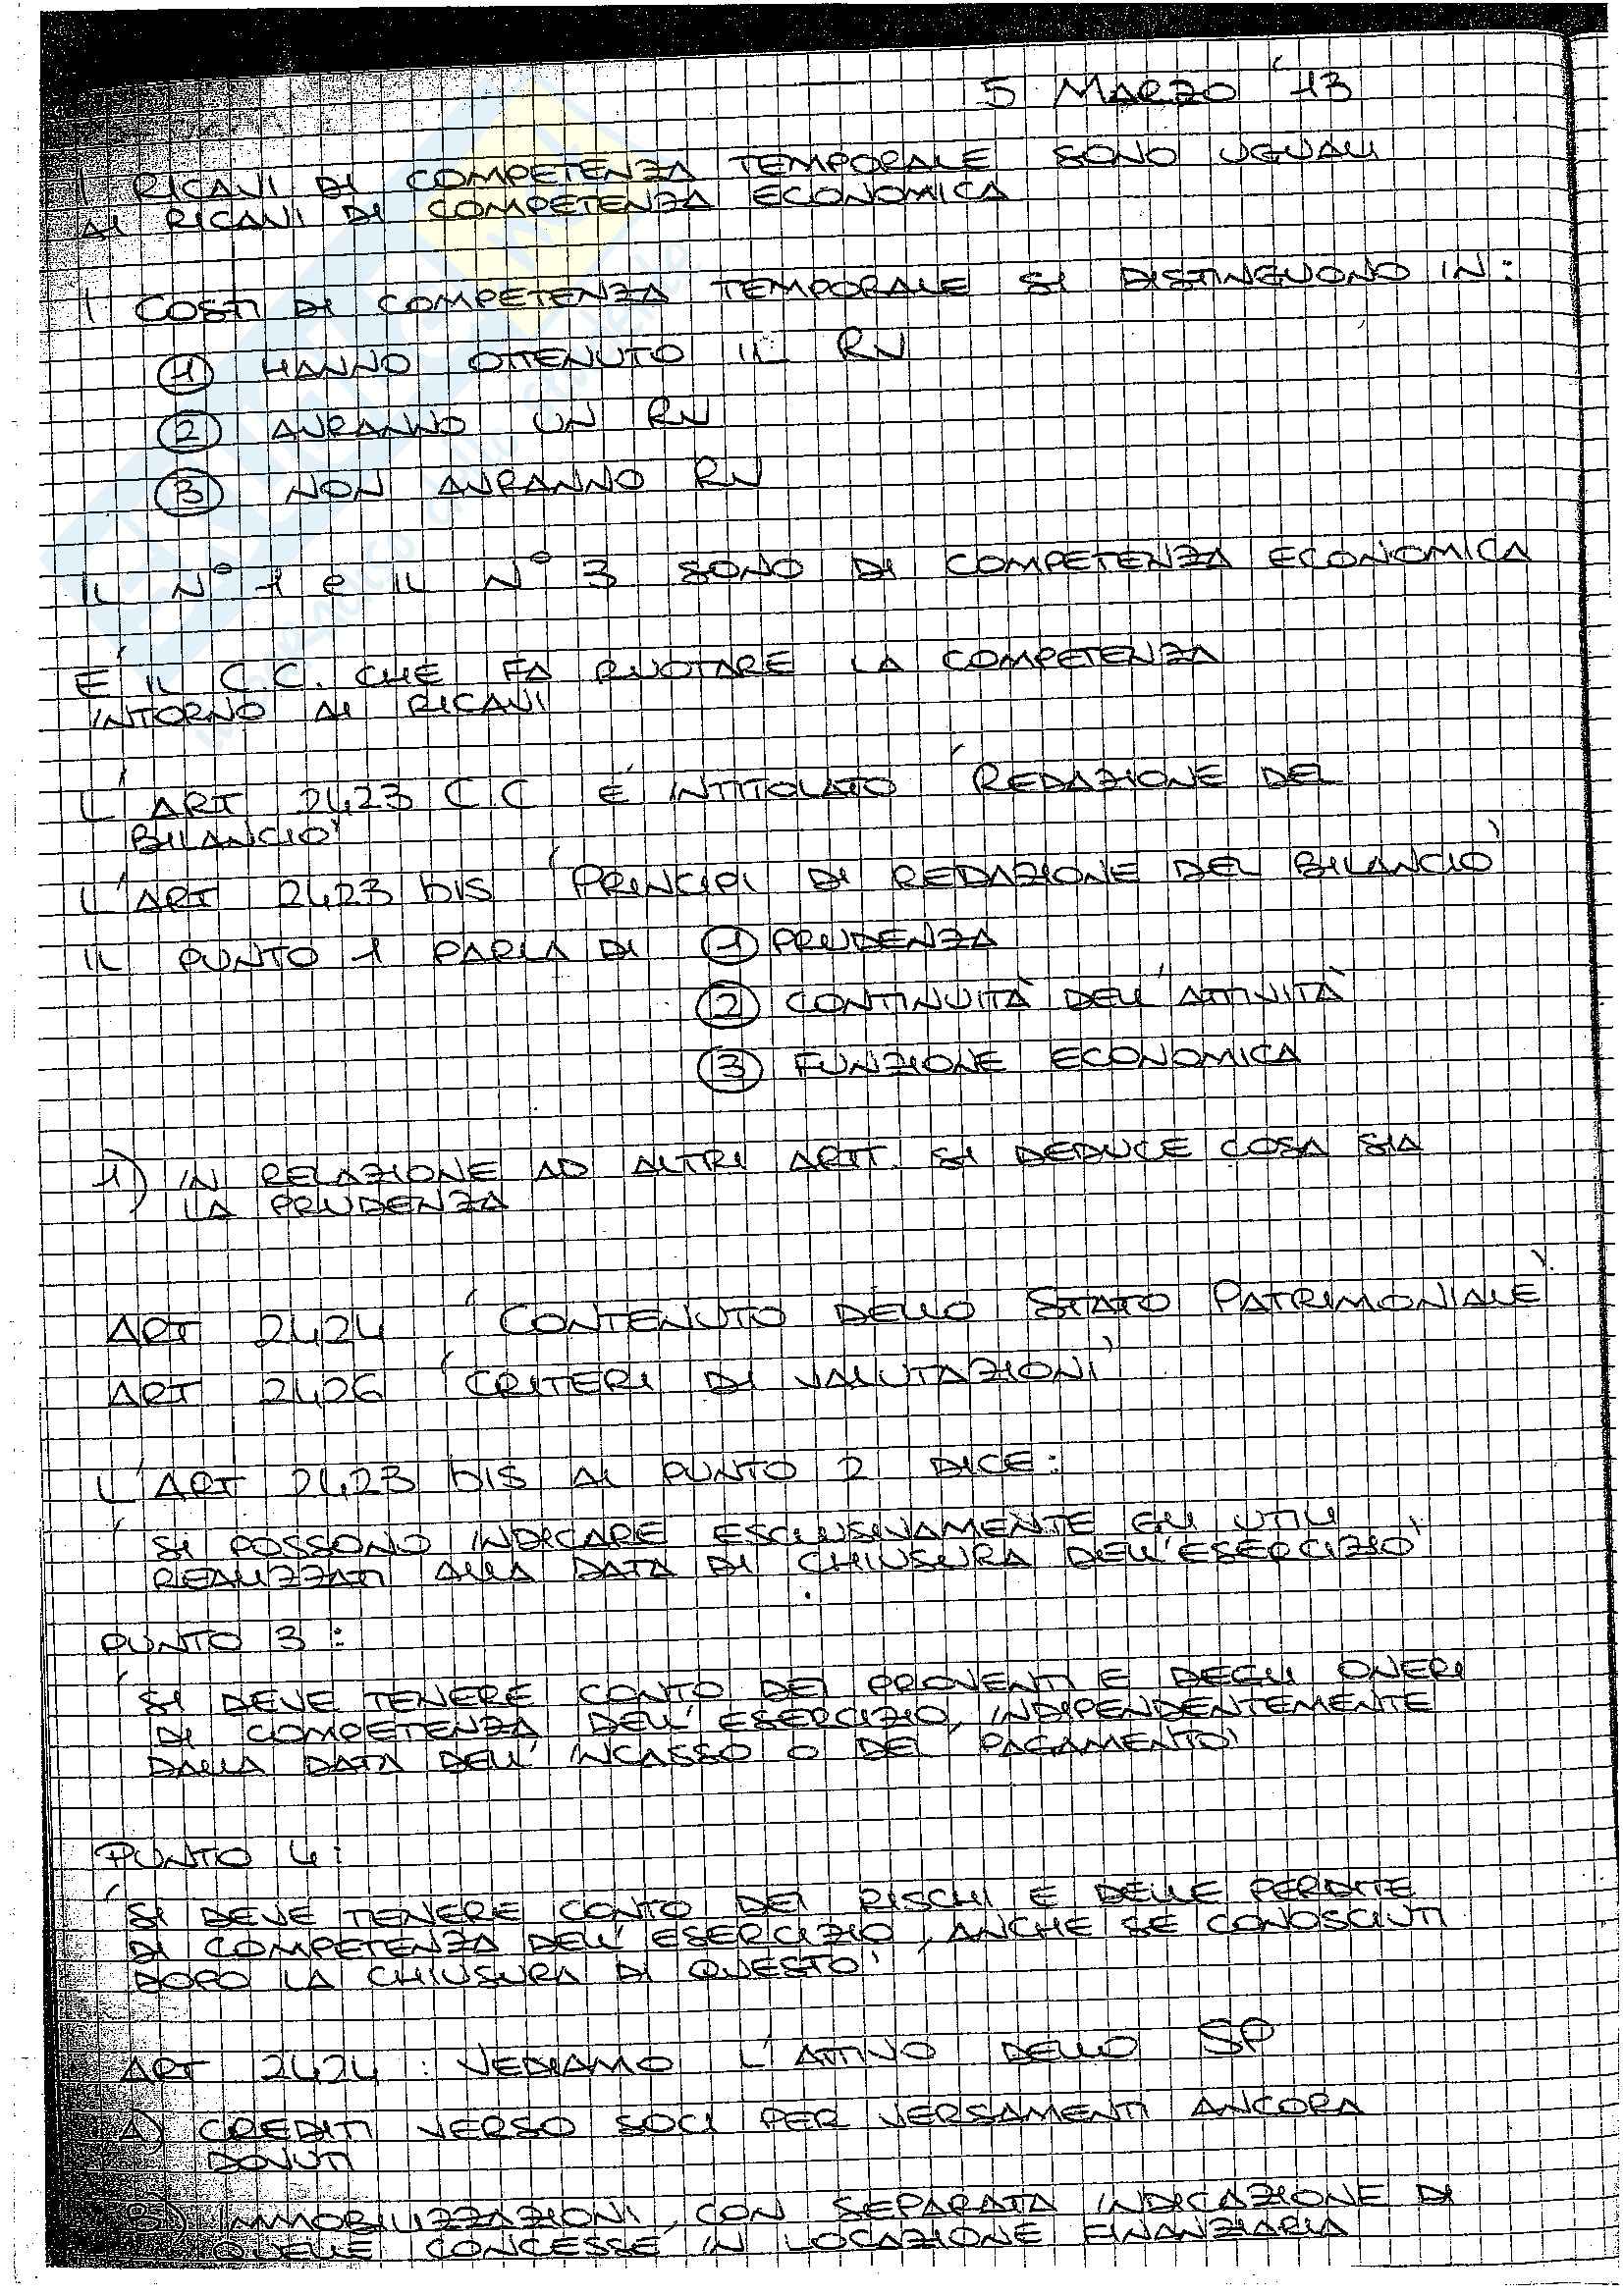 5 MARZO '13
I RICAVI DI COMPETENZA TEMPORALE SONO UGUALI
AI RICAVI DI COMPETENZA ECONOMICA
I COSTI DI COMPETENZA TEMPORALE SI DISTINGUONO IN:
① HANNO OTTENUTO IL RV
② AVRANNO UN RV
③ NON AVRANNO RV
IL N° 1 e IL N° 3 SONO DI COMPETENZA ECONOMICA
E' IL C.C. CHE FA RUOTARE LA COMPETENZA
INTORNO AI RICAVI
L'ART 2423 C.C E' INTITOLATO 'REDAZIONE DEL
BILANCIO'
L'ART 2423 bis 'PRINCIPI DI REDAZIONE DEL BILANCIO'
IL PUNTO 1 PARLA DI ① PRUDENZA
② CONTINUITÀ DELL'ATTIVITÀ
③ FUNZIONE ECONOMICA
1) IN RELAZIONE AD ALTRI ARTT. SI DEDUCE COSA SIA
LA PRUDENZA
ART 2424 'CONTENUTO DELLO STATO PATRIMONIALE'
ART 2426 'CRITERI DI VALUTAZIONI'
L'ART 2423 bis AL PUNTO 2 DICE:
'SI POSSONO INDICARE ESCLUSIVAMENTE GLI UTILI
REALIZZATI ALLA DATA DI CHIUSURA DELL'ESERCIZIO'
PUNTO 3:
'SI DEVE TENERE CONTO DEI PROVENTI E DEGLI ONERI
DI COMPETENZA DELL'ESERCIZIO, INDIPENDENTEMENTE
DALLA DATA DELL'INCASSO O DEL PAGAMENTO'
PUNTO 4:
'SI DEVE TENERE CONTO DEI RISCHI E DELLE PERDITE
DI COMPETENZA DELL'ESERCIZIO, ANCHE SE CONOSCIUTI
DOPO LA CHIUSURA DI QUESTO'
ART 2424: VEDIAMO L'ATTIVO DELLO SP
A) CREDITI VERSO SOCI PER VERSAMENTI ANCORA
DOVUTI
B) IMMOBILIZZAZIONI, CON SEPARATA INDICAZIONE DI
QUELLE CONCESSE IN LOCAZIONE FINANZIARIA